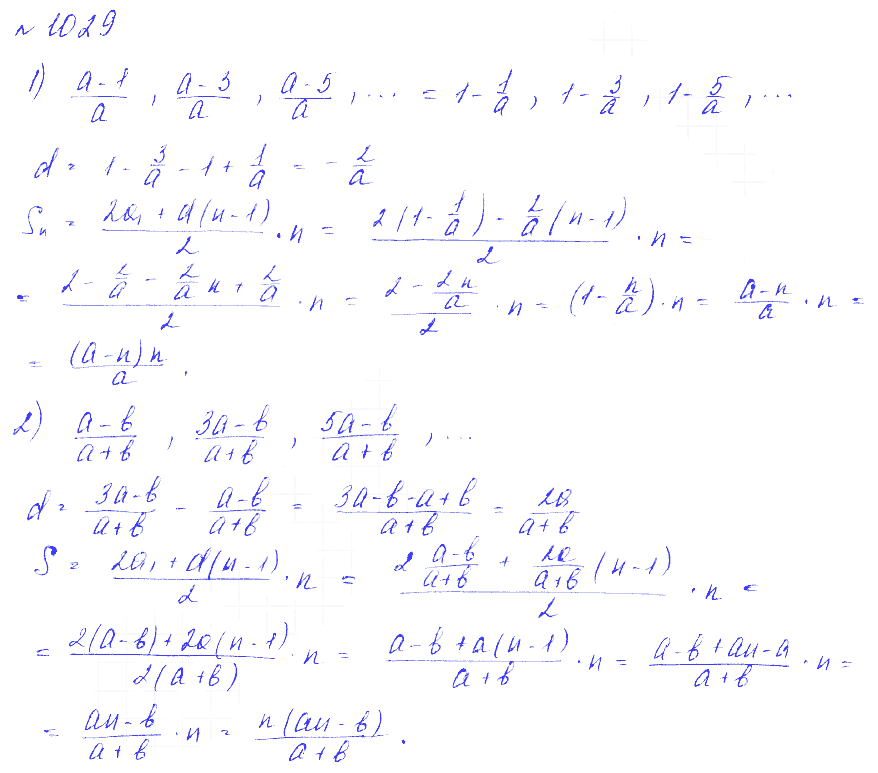 № 1029
1) \frac{a-1}{a}, \frac{a-3}{a}, \frac{a-5}{a}, ... = 1-\frac{1}{a}, 1-\frac{3}{a}, 1-\frac{5}{a}, ...
d = 1-\frac{3}{a}-1+\frac{1}{a} = -\frac{2}{a}
S_n = \frac{2a_1+d(n-1)}{2} \cdot n = \frac{2(1-\frac{1}{a})-\frac{2}{a}(n-1)}{2} \cdot n =
= \frac{2-\frac{2}{a}-\frac{2}{a}n+\frac{2}{a}}{2} \cdot n = \frac{2-\frac{2n}{a}}{2} \cdot n = (1-\frac{n}{a}) \cdot n = \frac{a-n}{a} \cdot n =
= \frac{(a-n)n}{a}.
2) \frac{a-b}{a+b}, \frac{3a-b}{a+b}, \frac{5a-b}{a+b}, ...
d = \frac{3a-b}{a+b} - \frac{a-b}{a+b} = \frac{3a-b-a+b}{a+b} = \frac{2a}{a+b}
S = \frac{2a_1+d(n-1)}{2} \cdot n = \frac{2\frac{a-b}{a+b}+\frac{2a}{a+b}(n-1)}{2} \cdot n =
= \frac{2(a-b)+2a(n-1)}{2(a+b)} \cdot n = \frac{a-b+a(n-1)}{a+b} \cdot n = \frac{a-b+an-a}{a+b} \cdot n =
= \frac{an-b}{a+b} \cdot n = \frac{n(an-b)}{a+b}.